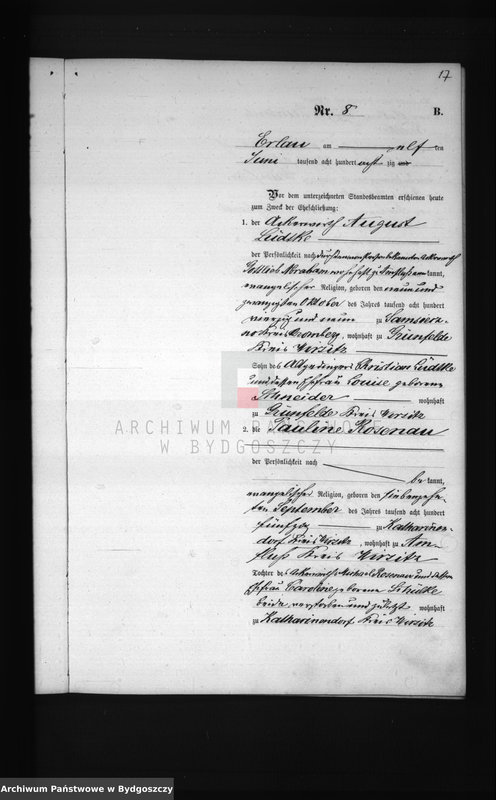 17
Nr. 8 B.
Erlau am elf ten
Juni tausend acht hundert acht zig und
Vor dem unterzeichneten Standesbeamten erschienen heute
zum Zweck der Eheschließung:
1. der Ackerwirth August
Lüdtke
der Persönlichkeit nach durch den
Gottlieb Abraham kannt,
evangelischer Religion, geboren den neun und
zwanzigsten Oktober des Jahres tausend acht hundert
vierzig und neun zu Samsiecz-
no Kreis Bromberg, wohnhaft zu Grünfelde
Kreis Wirsitz
Sohn des Altsitzers Christian Lüdtke
und dessen Ehefrau Louise geborene
Schneider wohnhaft
zu Grünfelde Kreis Wirsitz
2. die Pauline Rosenau
der Persönlichkeit nach
be kannt,
evangelischer Religion, geboren den siebenzehn-
ten September des Jahres tausend acht hundert
fünfzig zu Katharinen-
dorf Kreis Wirsitz, wohnhaft zu
Kreis Wirsitz
Tochter des Ackerwirths Michael Rosenau und dessen
Ehefrau Caroline geborene Schülke
beide verstorben und zuletzt wohnhaft
zu Katharinendorf Kreis Wirsitz
ARCHIWUM PAŃSTWOWE
W BYDGOSZCZY
Archiwum Państwowe w Bydgoszczy